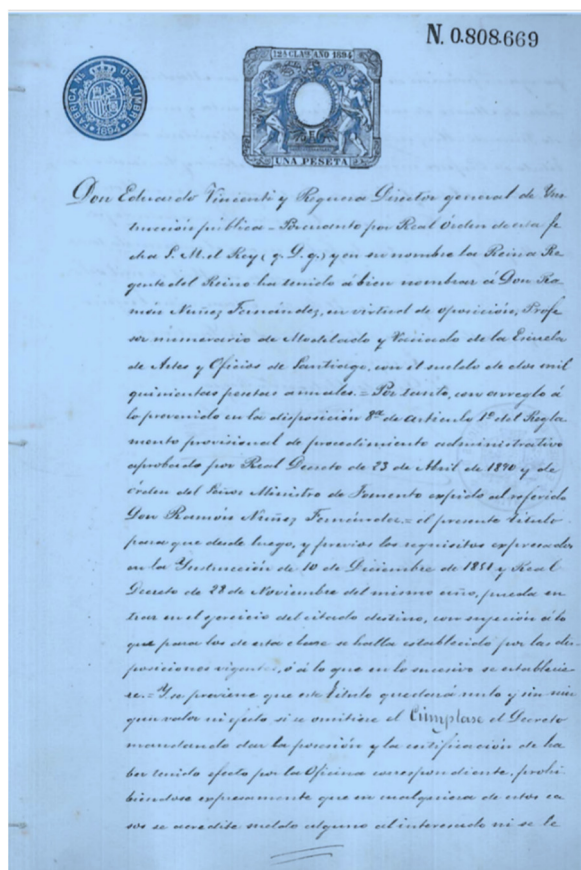 N. 0.808.669
12ª CLASE AÑO 1894
FABRICA NL. DEL TIMBRE
1894
UNA PESETA
Don Eduardo Vincenti y Reguera Director general de Ins
trucción pública = Por cuanto por Real órden de esta fe
cha S. M. el Rey (q. D. g.) y en su nombre la Reina Re
gente del Reino ha tenido á bien nombrar á Don Ra
món Nuñez Fernández, en virtud de oposición, Profe
sor numerario de Modelado y Vaciado de la Escuela
de Artes y Oficios de Santiago, con el sueldo de dos mil
quinientas pesetas anuales. = Por tanto, con arreglo á
lo prevenido en la disposición 8ª de artículo 1º del Regla
mento provisional de procedimiento administrativo
aprobado por Real Decreto de 23 de Abril de 1890 y de
órden del Señor Ministro de Fomento expido al referido
Don Ramón Nuñez Fernández = el presente Título
para que desde luego, y previos los requisitos expresados
en la Instrucción de 10 de Diciembre de 1851 y Real
Decreto de 28 de Noviembre del mismo año, pueda en
trar en el ejercicio del citado destino, con sujeción á lo
que para los de esta clase se halla establecido por las dis
posiciones vigentes, ó á lo que en lo sucesivo se establecie
re. = Y se previene que este Título quedará nulo y sin nin
gun valor ni efecto si se omitiese el Cúmplase el Decreto
mandando dar la posesión y la certificación de ha
ber tenido efecto por la Oficina correspondiente, prohi
biéndose expresamente que en cualquiera de estos ca
sos se acredite sueldo alguno al interesado ni se le